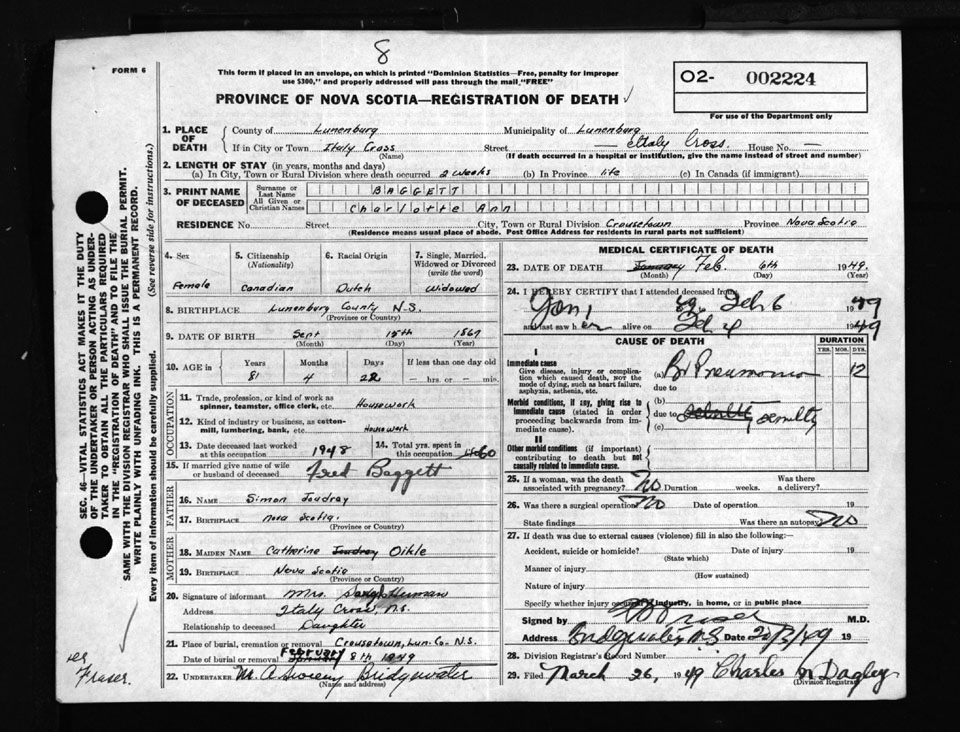 8
FORM 6
This form if placed in an envelope, on which is printed "Dominion Statistics—Free, penalty for improper
use $300," and properly addressed will pass through the mail "FREE"
O2- 002224
For use of the Department only
PROVINCE OF NOVA SCOTIA—REGISTRATION OF DEATH ✓
SEC. 46—VITAL STATISTICS ACT MAKES IT THE DUTY
OF THE UNDERTAKER OR PERSON ACTING AS UNDER-
TAKER TO OBTAIN ALL THE PARTICULARS REQUIRED
IN THE "REGISTRATION OF DEATH" AND TO FILE THE
SAME WITH THE DIVISION REGISTRAR WHO SHALL ISSUE THE BURIAL PERMIT.
WRITE PLAINLY WITH UNFADING INK. THIS IS A PERMANENT RECORD.
Every item of information should be carefully supplied. (See reverse side for instructions.)
Fraser.
1. PLACE OF DEATH
County of Lunenburg Municipality of Lunenburg
If in City or Town Italy Cross Street — Italy Cross. House No. —
(Name) (If death occurred in a hospital or institution, give the name instead of street and number)
2. LENGTH OF STAY (in years, months and days)
(a) In City, Town or Rural Division where death occurred 2 weeks (b) In Province life (c) In Canada (if immigrant)
3. PRINT NAME OF DECEASED
Surname or Last Name BAGGETT
All Given or Christian Names Charlotte Ann
RESIDENCE No. Street City, Town or Rural Division Crousetown Province Nova Scotia
(Residence means usual place of abode. Post Office Address for residents in rural parts not sufficient)
4. Sex Female
5. Citizenship (Nationality) Canadian
6. Racial Origin Dutch
7. Single, Married, Widowed or Divorced (write the word) Widowed
8. BIRTHPLACE Lunenburg County N.S.
(Province or Country)
9. DATE OF BIRTH Sept 15th 1867
(Month) (Day) (Year)
10. AGE in Years Months Days If less than one day old
81 4 22 — hrs. or — min.
OCCUPATION
11. Trade, profession, or kind of work as
spinner, teamster, office clerk, etc. Housework
12. Kind of industry or business, as cotton-
mill, lumbering, bank, etc. Housework
13. Date deceased last worked
at this occupation 1948
14. Total yrs. spent in
this occupation 60
15. If married give name of wife
or husband of deceased Fred Baggett
FATHER
16. NAME Simon Joudrey
17. BIRTHPLACE Nova Scotia.
(Province or Country)
MOTHER
18. MAIDEN NAME Catherine Joudrey Oikle
19. BIRTHPLACE Nova Scotia
(Province or Country)
20. Signature of informant Mrs. Herman
Address Italy Cross, N.S.
Relationship to deceased Daughter
21. Place of burial, cremation or removal Crousetown, Lun. Co. N.S.
Date of burial or removal February 8th 1949
22. UNDERTAKER M. A. Sweeny Bridgewater
(Name and address)
MEDICAL CERTIFICATE OF DEATH
23. DATE OF DEATH January Feb. 6th 1949.
(Month) (Day) (Year)
24. I HEREBY CERTIFY that I attended deceased from
Feb 6 1949
and last saw her alive on Feb 4 1949
CAUSE OF DEATH DURATION
YRS. MOS. DYS.
I
Immediate cause
Give disease, injury or complica-
tion which caused death, NOT the
mode of dying, such as heart failure,
asphyxia, asthenia, etc.
(a) Br. Pneumonia 12
due to
Morbid conditions, if any, giving rise to
immediate cause (stated in order
proceeding backwards from im-
mediate cause).
(b)
due to Senility Senility
(c)
II
Other morbid conditions (if important)
contributing to death but not
causally related to immediate cause.
25. If a woman, was the death
associated with pregnancy? No Duration weeks. Was there
a delivery?
26. Was there a surgical operation No Date of operation 19
State findings Was there an autopsy No
27. If death was due to external causes (violence) fill in also the following:—
Accident, suicide or homicide? Date of injury 19
(State which)
Manner of injury
(How sustained)
Nature of injury
Specify whether injury occurred in industry, in home, or in public place
Signed by M.D.
Address Bridgewater N.S. Date 20/2/49 19
28. Division Registrar's Record Number
29. Filed March 26, 1949 Charles N Dagley
(Division Registrar)